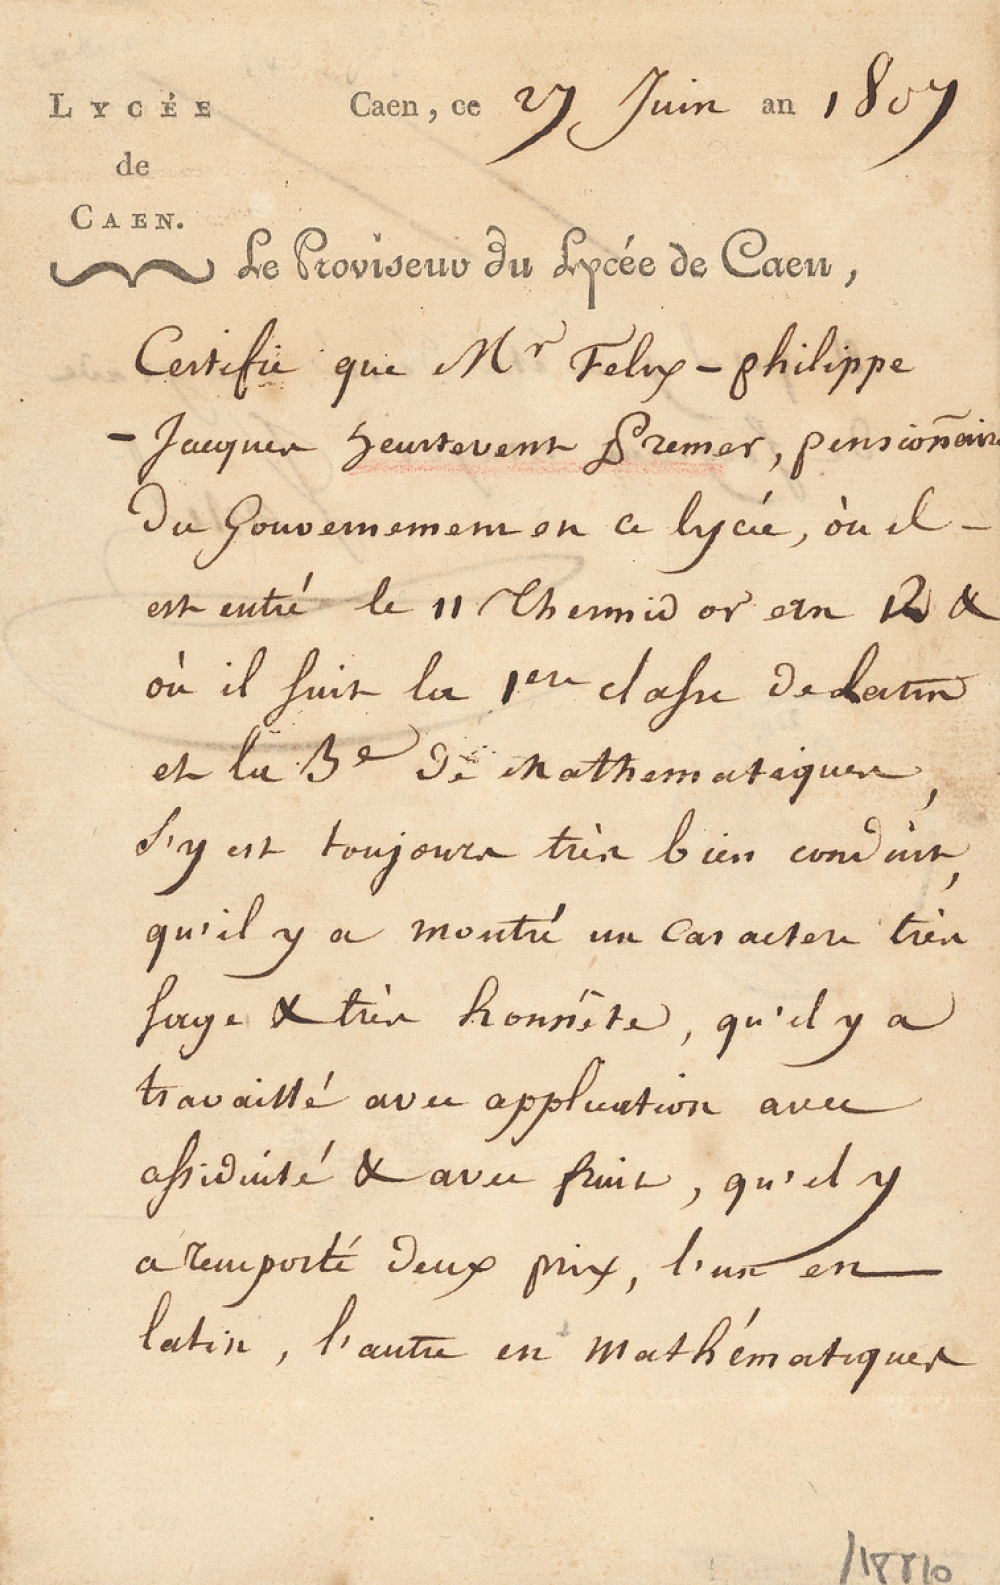 LYCÉE
de
CAEN.
Caen, ce 27 Juin an 1807
Le Proviseur du Lycée de Caen,
Certifie que Mr Felix - philippe
- Jacques heurtevent Premer, pensionnaire
du Gouvernement en ce lycée, où il -
est entré le 11 Thermidor an 12 &
où il suit la 1ere classe de latin
et la 3e de Mathematiques,
s'y est toujours très bien conduit,
qu'il y a montré un caractere très
sage & très honnête, qu'il y a
travaillé avec application avec
assiduité & avec fruit, qu'il y
a remporté deux prix, l'un en
latin, l'autre en Mathématiques